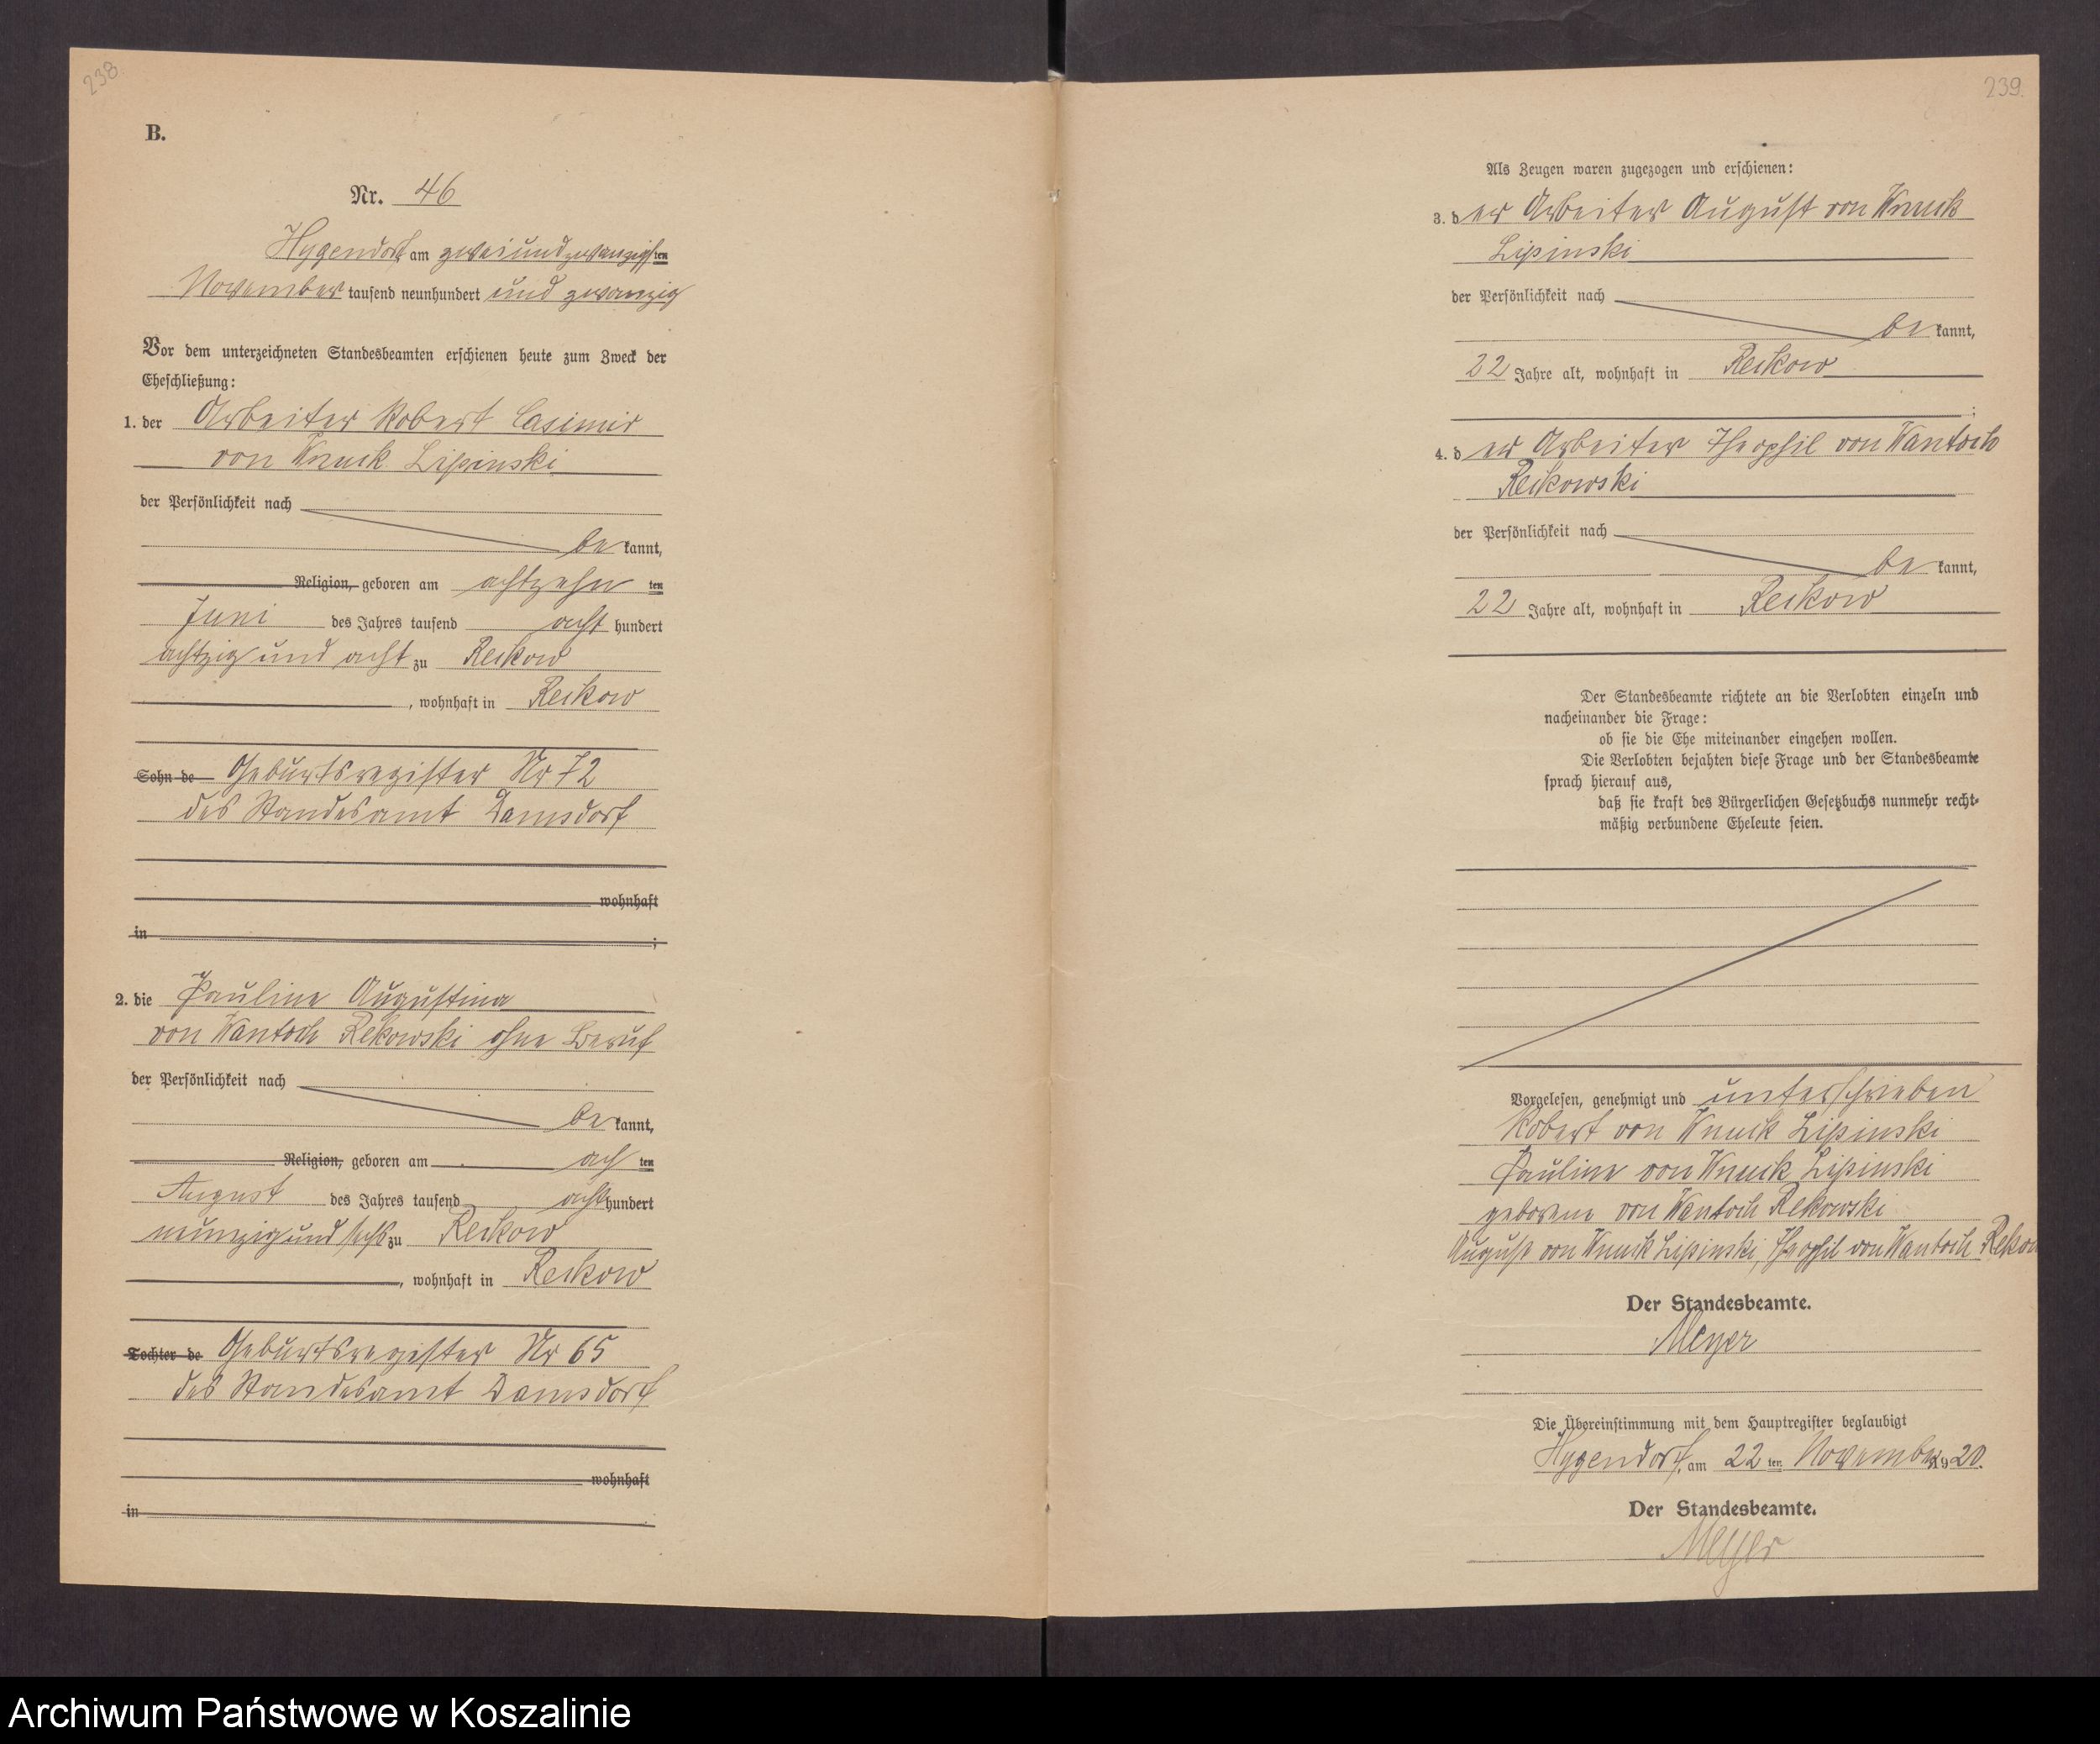 238
B.
Nr. 46
Hygendorf am zweiundzwanzigsten
November tausend neunhundert und zwanzig
Vor dem unterzeichneten Standesbeamten erschienen heute zum Zweck der
Eheschließung:
1. der Arbeiter Robert Casimir
von Wnuck Lipinski
der Persönlichkeit nach
be kannt,
Religion, geboren am achtzehn ten
Juni des Jahres tausend acht hundert
achtzig und acht zu Reckow
, wohnhaft in Reckow
Sohn de Geburtsregister Nr 72
des Standesamt Damsdorf
wohnhaft
in ;
2. die Pauline Augustina
von Wantoch Rekowski ohne Beruf
der Persönlichkeit nach
be kannt,
Religion, geboren am ach ten
August des Jahres tausend acht hundert
neunzig und sechs zu Reckow
, wohnhaft in Reckow
Tochter de Geburtsregister Nr 65
des Standesamt Damsdorf
wohnhaft
in
239.
Als Zeugen waren zugezogen und erschienen:
3. der Arbeiter August von Wnuck
Lipinski
der Persönlichkeit nach
be kannt,
22 Jahre alt, wohnhaft in Reckow
;
4. der Arbeiter Theophil von Wantoch
Reckowski
der Persönlichkeit nach
be kannt,
22 Jahre alt, wohnhaft in Reckow
Der Standesbeamte richtete an die Verlobten einzeln und
nacheinander die Frage:
ob sie die Ehe miteinander eingehen wollen.
Die Verlobten bejahten diese Frage und der Standesbeamte
sprach hierauf aus,
daß sie kraft des Bürgerlichen Gesetzbuchs nunmehr recht-
mäßig verbundene Eheleute seien.
Vorgelesen, genehmigt und unterschrieben
Robert von Wnuck Lipinski
Pauline von Wnuck Lipinski
geborene von Wantoch Rekowski
August von Wnuck Lipinski, Theophil von Wantoch Rekow
Der Standesbeamte.
Meyer
Die Übereinstimmung mit dem Hauptregister beglaubigt
Hygendorf, am 22 ten November 1920.
Der Standesbeamte.
Meyer
Archiwum Państwowe w Koszalinie